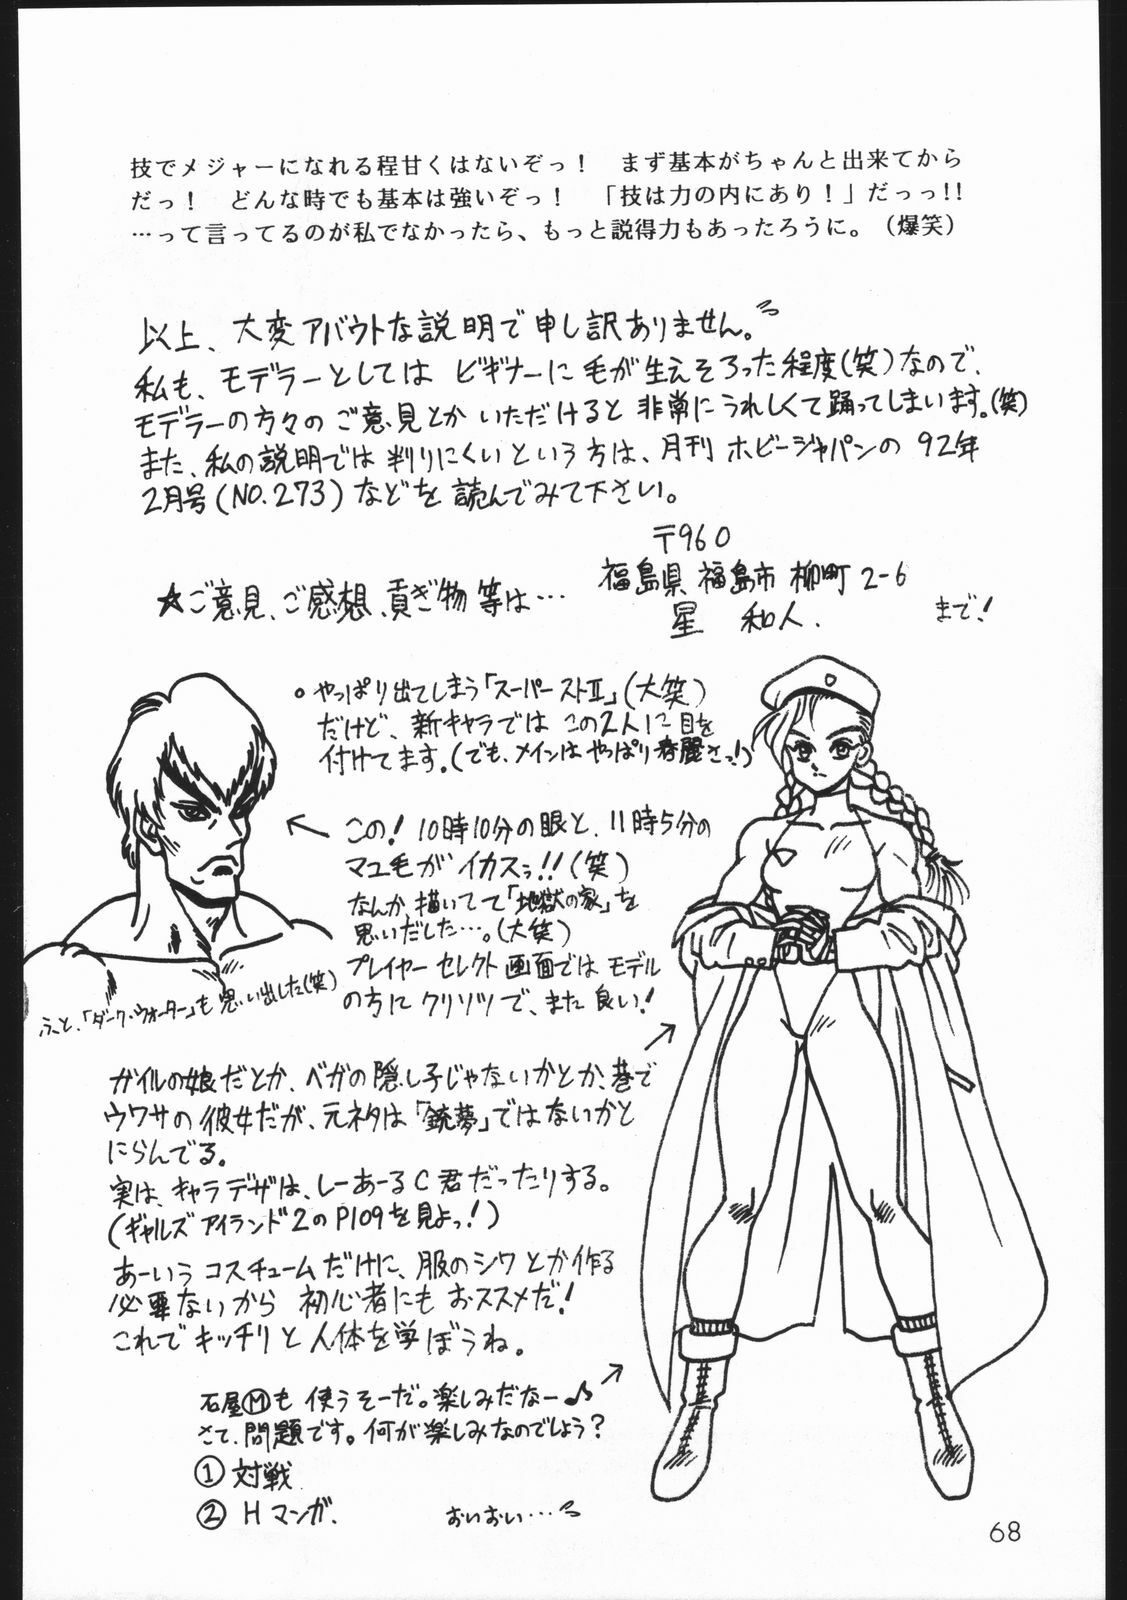 技でメジャーになれる程甘くはないぞっ！　まず基本がちゃんと出来てから
だっ！　どんな時でも基本は強いぞっ！　「技は力の内にあり！」だっっ!!
…って言ってるのが私でなかったら、もっと説得力もあったろうに。（爆笑）
以上、大変アバウトな説明で申し訳ありません。
私も、モデラーとしては ビギナーに毛が生えそろった程度(笑)なので、
モデラーの方々の ご意見とか いただけると 非常にうれしくて踊ってしまいます。(笑)
また、私の説明では 判りにくいという方は、月刊 ホビージャパンの 92年
2月号(NO.273)などを 読んでみて下さい。
〒960
福島県 福島市 柳町 2-6
☆ご意見、ご感想、貢ぎ物 等は…
星　和人.
まで!
。やっぱり出てしまう「スーパーストⅡ」(大笑)
だけど、新キャラでは この2人に目を
付けてます。(でも、メインは やっぱり 春麗さっ!)
← この! 10時10分の眼と、11時5分の
マユ毛が イカスぅ!!(笑)
なんか、描いてて「地獄の家」を
思いだした…。(大笑)
プレイヤーセレクト画面では モデル
の方に クリソツで、また良い!
ふと、「ダーク・ウォーター」も思い出した(笑)
ガイルの娘だとか、ベガの隠し子じゃないかとか、巷で
ウワサの彼女だが、元ネタは「銃夢」ではないかと
にらんでる。
実は、キャラデザは、しーあーるC君だったりする。
(ギャルズアイランド2のP109を見よっ!)
あーいう コスチュームだけに、服のシワとか作る
必要ないから 初心者にも おススメだ!
これで キッチリと 人体を学ぼうね。
石屋Ⓜも 使うそーだ。楽しみだなー♪
さて、問題です。何が楽しみなのでしょう?
① 対戦
② H マンガ.
おいおい…
68